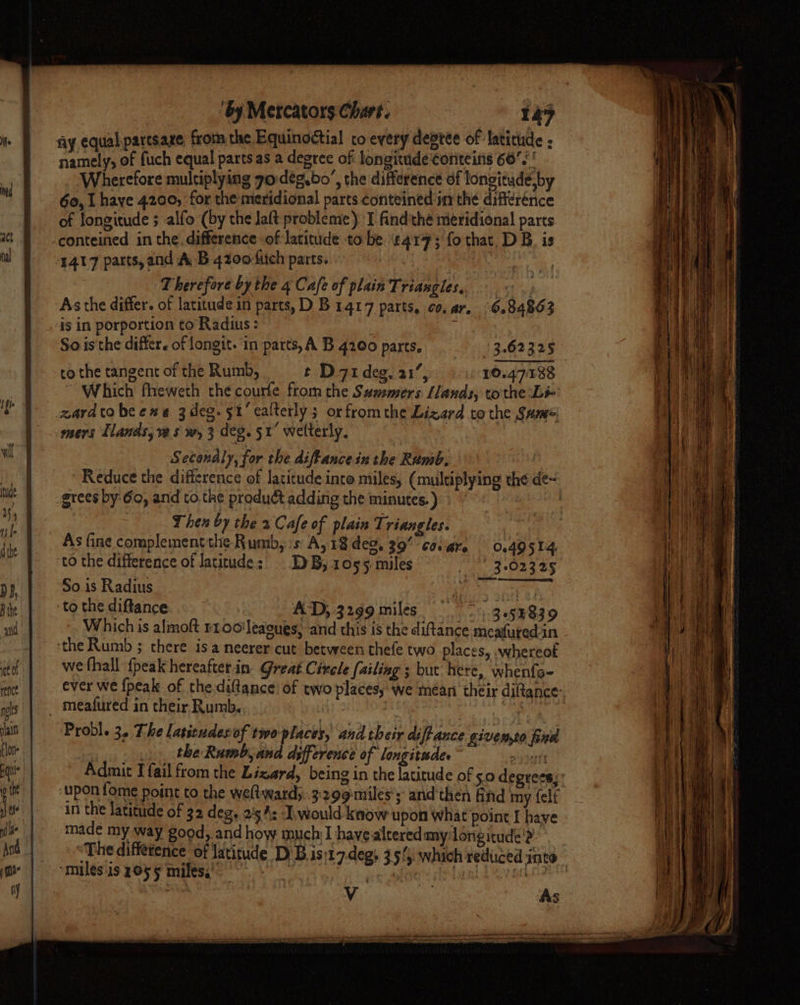 by Mercators Chart. 147
ny equal parts are from the Equinoctial to every degree of latitude :
namely, of such equal parts as a degree of longitude conteins 60′.
Wherefore multiplying 70 deg. 00′, the difference of longitude, by
60, I have 4200, for the meridional parts conteined in the difference
of longitude ; also (by the last probleme) I find the meridional parts
conteined in the difference of latitude to be 1417 ; so that D B, is
1417 parts, and A B 4200 such parts.
Therefore by the 4 Case of plain Triangles.
As the differ. of latitude in parts, D B 1417 parts, co. ar. 6.84863
is in porportion to Radius :
So is the differ. of longit. in parts, A B 4200 parts. 3.62325
to the tangent of the Rumb, D 71 deg. 21′, 10.47188
Which sheweth the course from the Summers Ilands, to the Li-
zard to be e n e 3 deg. 51′ easterly ; or from the Lizard to the Sum-
mers Ilands, w s w, 3 deg. 51′ westerly.
Secondly, for the distance in the Rumb.
Reduce the difference of latitude into miles, (multiplying the de-
grees by 60, and to the product adding the minutes.)
Then by the 2 Case of plain Triangles.
As sine complement the Rumb, s A, 18 deg. 39′ co. ar. 0.49514
to the difference of latitude : D B, 1055 miles 3.02325
So is Radius
to the distance A D, 3299 miles 3.51839
Which is almost 1100 leagues, and this is the distance measured in
the Rumb ; there is a neerer cut between these two places, whereof
we shall speak hereafter in Great Circle sailing ; but here, whenso-
ever we speak of the distance of two places, we mean their distance
measured in their Rumb.
Probl. 3. The latitudes of two places, and their distance given, to find
the Rumb, and difference of longitude.
Admit I sail from the Lizard, being in the latitude of 50 degrees,
upon some point to the westward, 3299 miles ; and then find my self
in the latitude of 32 deg. 25′ : I would know upon what point I have
made my way good, and how much I have altered my longitude ?
The difference of latitude D B is 17 deg. 35′, which reduced into
miles is 1055 miles.
V As